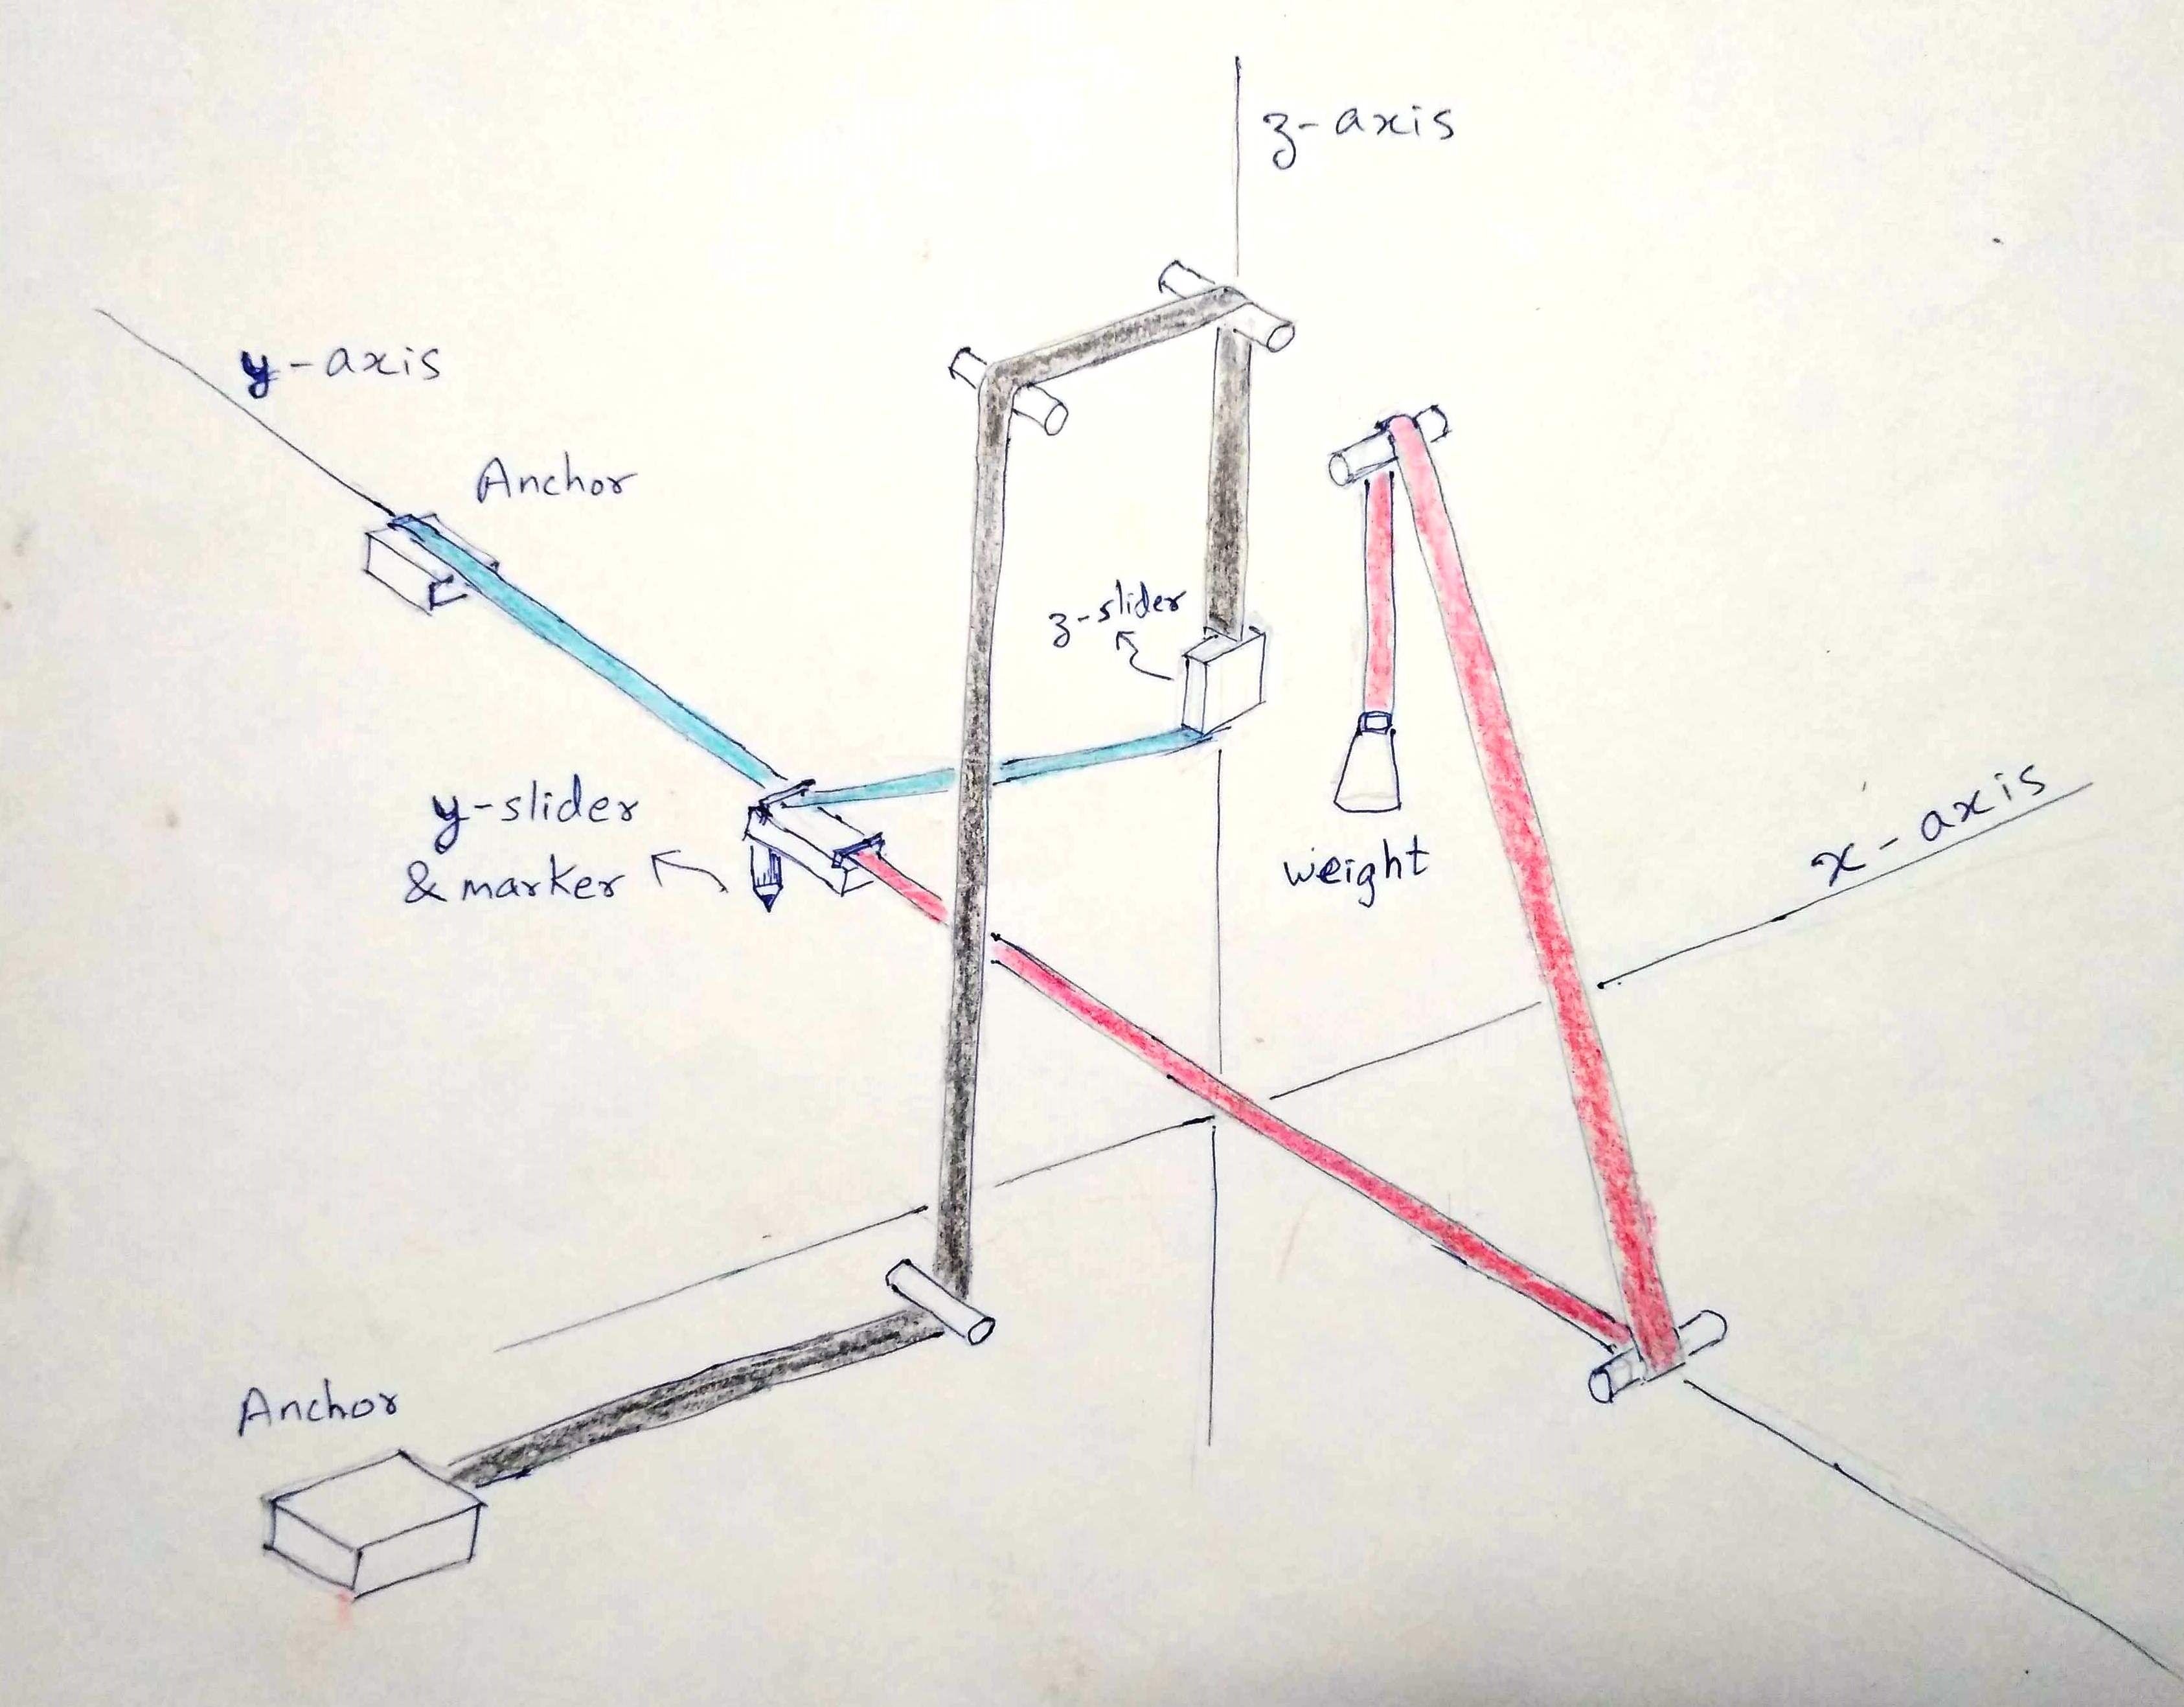 z-axis
y-axis
Anchor
z-slider
y-slider
& marker
weight
x-axis
Anchor